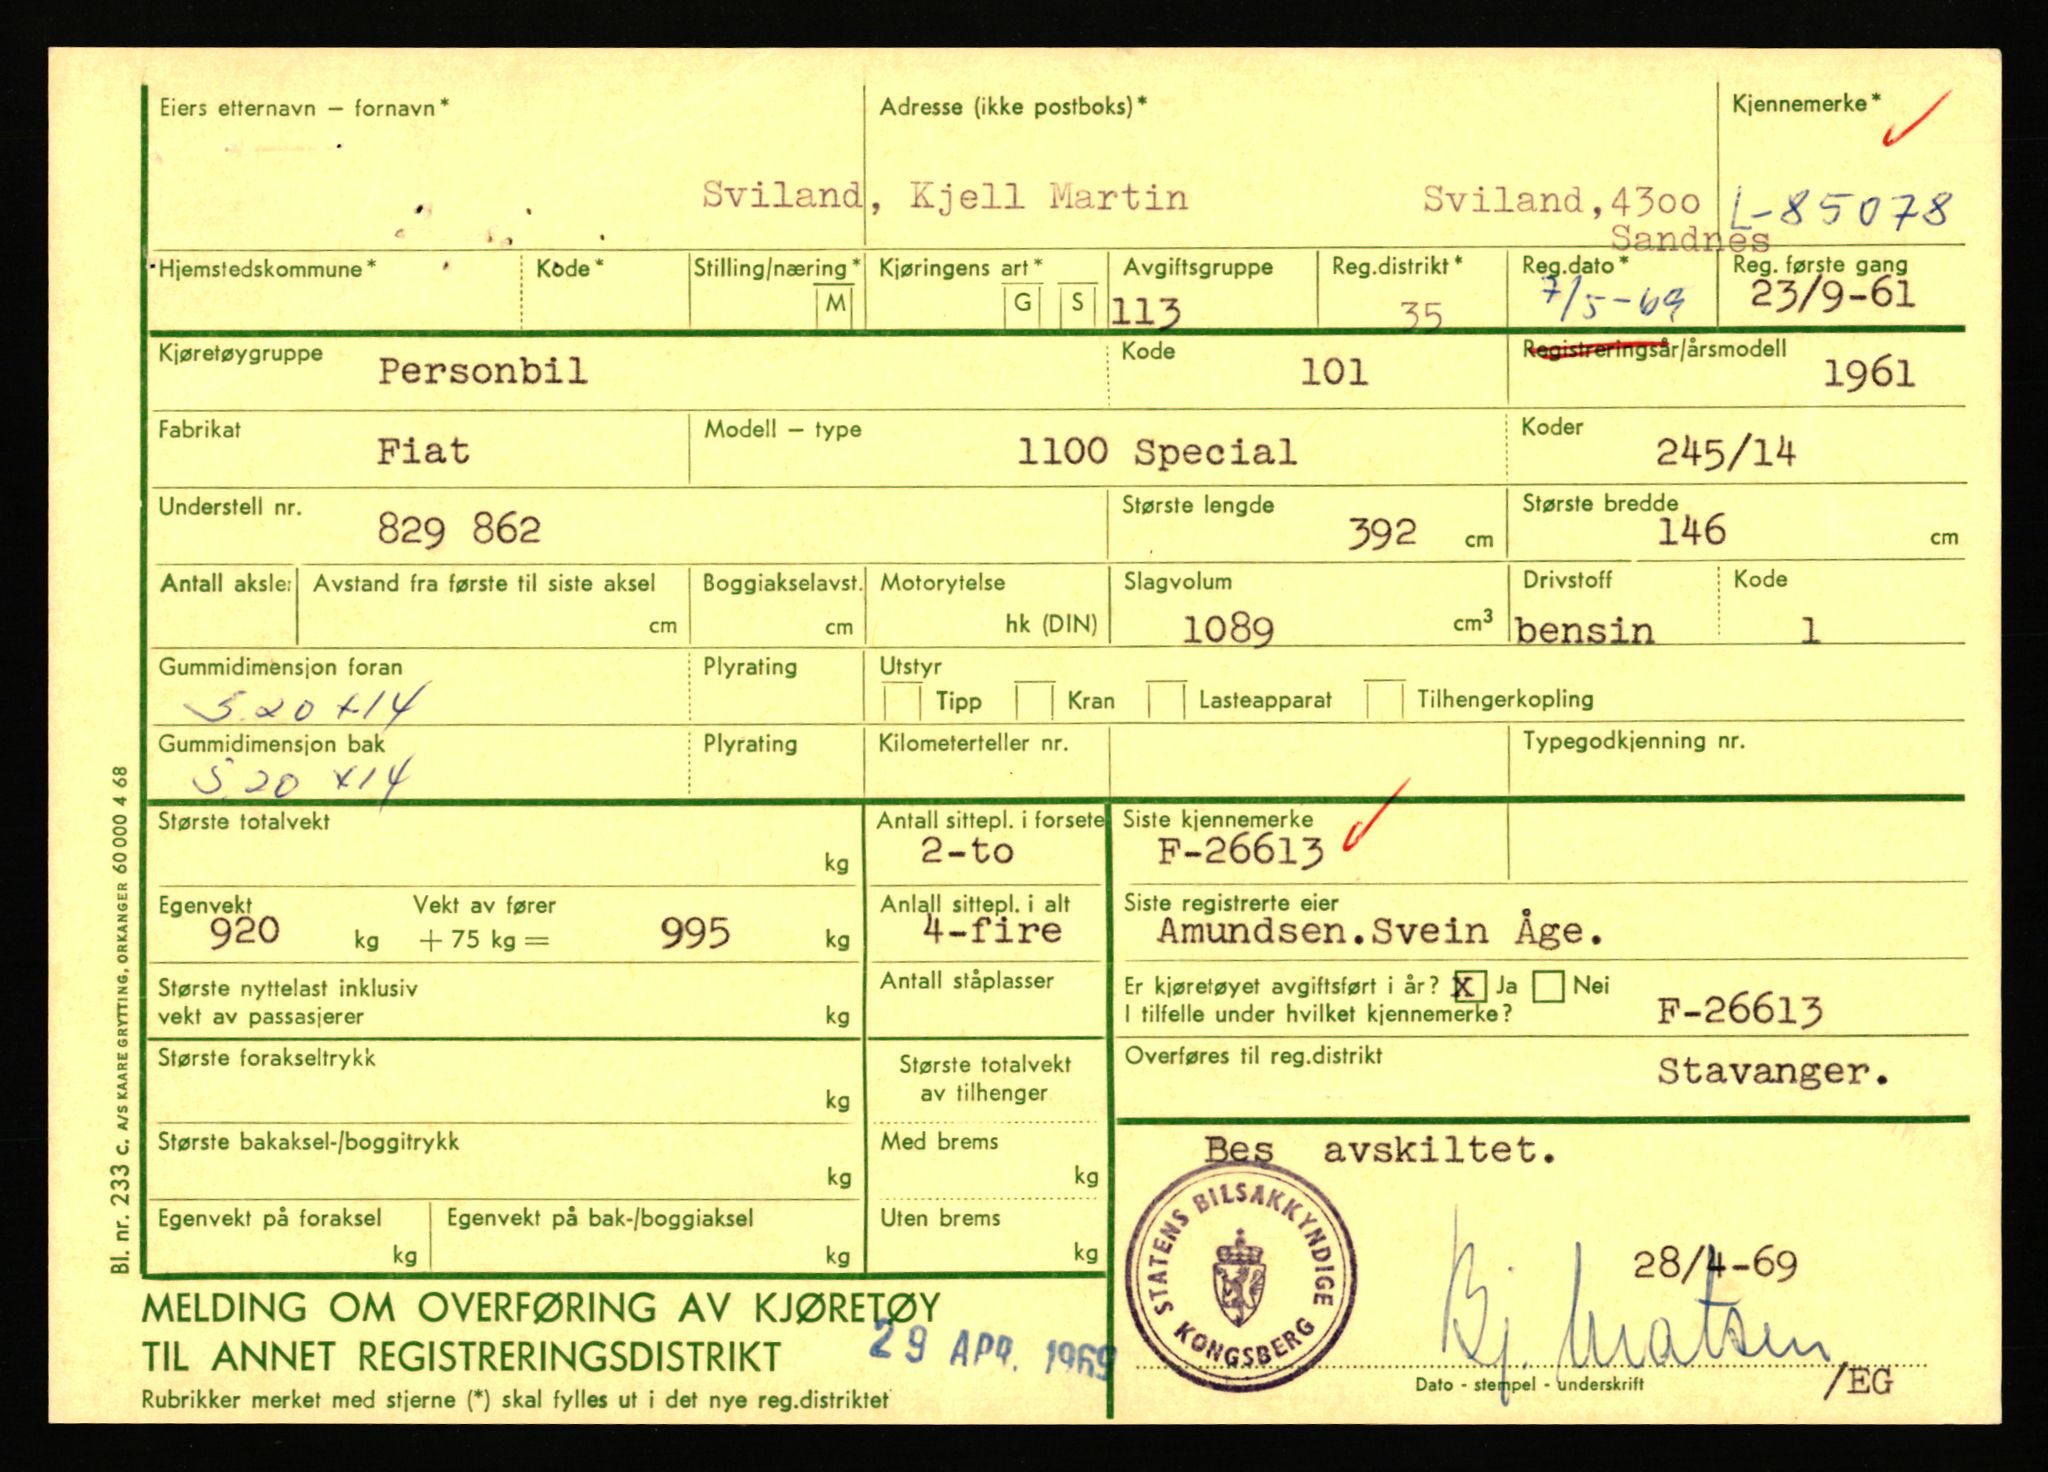 Eiers etternavn – fornavn* Adresse (ikke postboks)* Kjennemerke*
Sviland, Kjell Martin Sviland,4300 L-85078
Sandnes
Hjemstedskommune* Kode* Stilling/næring* Kjøringens art* Avgiftsgruppe Reg.distrikt* Reg.dato* Reg. første gang
M G S 113 35 7/5-69 23/9-61
Kjøretøygruppe Kode Registreringsår/årsmodell
Personbil 101 1961
Fabrikat Modell – type Koder
Fiat 1100 Special 245/14
Understell nr. Største lengde Største bredde
829 862 392 cm 146 cm
Antall aksle: Avstand fra første til siste aksel Boggiakselavst. Motorytelse Slagvolum Drivstoff Kode
cm cm hk (DIN) 1089 cm3 bensin 1
Gummidimensjon foran Plyrating Utstyr
5.20 x14 Tipp Kran Lasteapparat Tilhengerkopling
Gummidimensjon bak Plyrating Kilometerteller nr. Typegodkjenning nr.
5.20 x14
Største totalvekt Antall sittepl. i forsete Siste kjennemerke
kg 2-to F-26613
Egenvekt Vekt av fører Anlall sittepl. i alt Siste registrerte eier
920 kg + 75 kg = 995 kg 4-fire Amundsen.Svein Åge.
Største nyttelast inklusiv Antall ståplasser Er kjøretøyet avgiftsført i år? X Ja Nei
vekt av passasjerer kg I tilfelle under hvilket kjennemerke? F-26613
Største forakseltrykk Største totalvekt Overføres til reg.distrikt
kg av tilhenger Stavanger.
Største bakaksel-/boggitrykk Med brems Bes avskiltet.
kg kg
Egenvekt på foraksel Egenvekt på bak-/boggiaksel Uten brems
kg kg kg
STATENS BILSAKKYNDIGE
KONGSBERG
28/4-69
MELDING OM OVERFØRING AV KJØRETØY
TIL ANNET REGISTRERINGSDISTRIKT
29 APR. 1969
Bj. Matsen
Dato - stempel - underskrift /EG
Rubrikker merket med stjerne (*) skal fylles ut i det nye reg.distriktet
Bl. nr. 233 c. A/S KAARE GRYTTING, ORKANGER 60 000 4 68